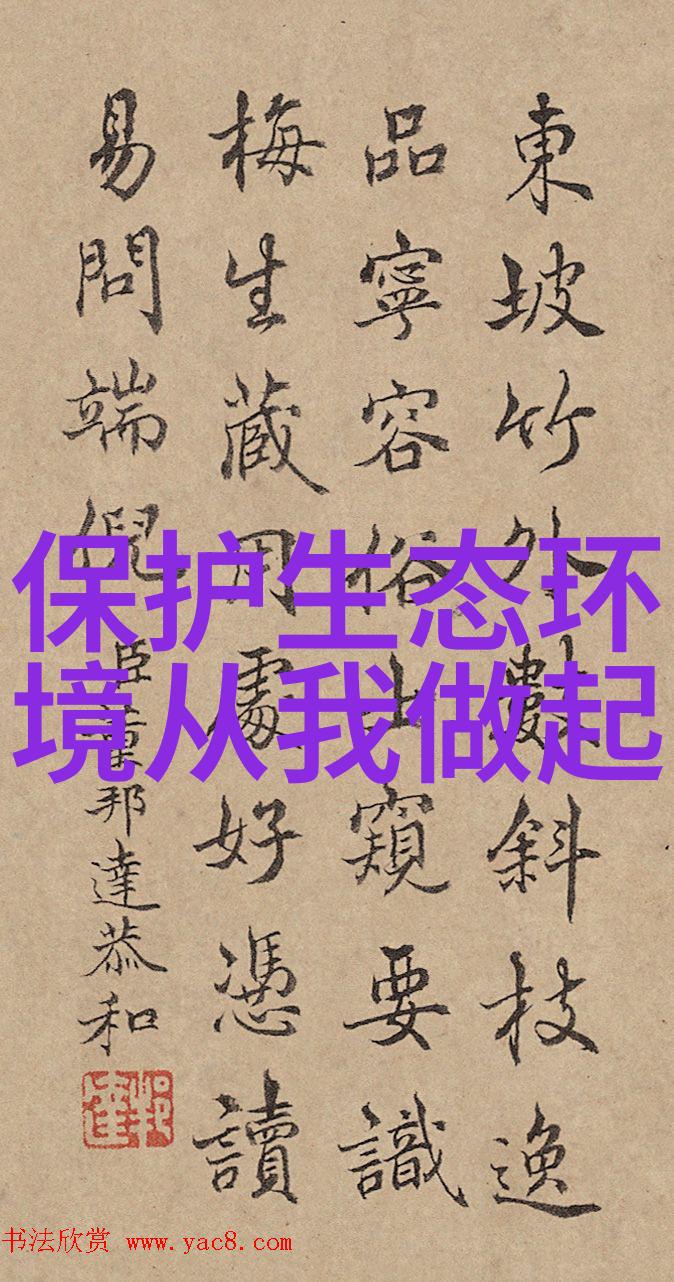 東坡竹外數斜枝逸
品寧容俗士窺要識
梅生藏用處好憑讀
易問端倪
臣董邦達恭和
保护生态环
境从我做起
书法欣赏 www.yac8.com